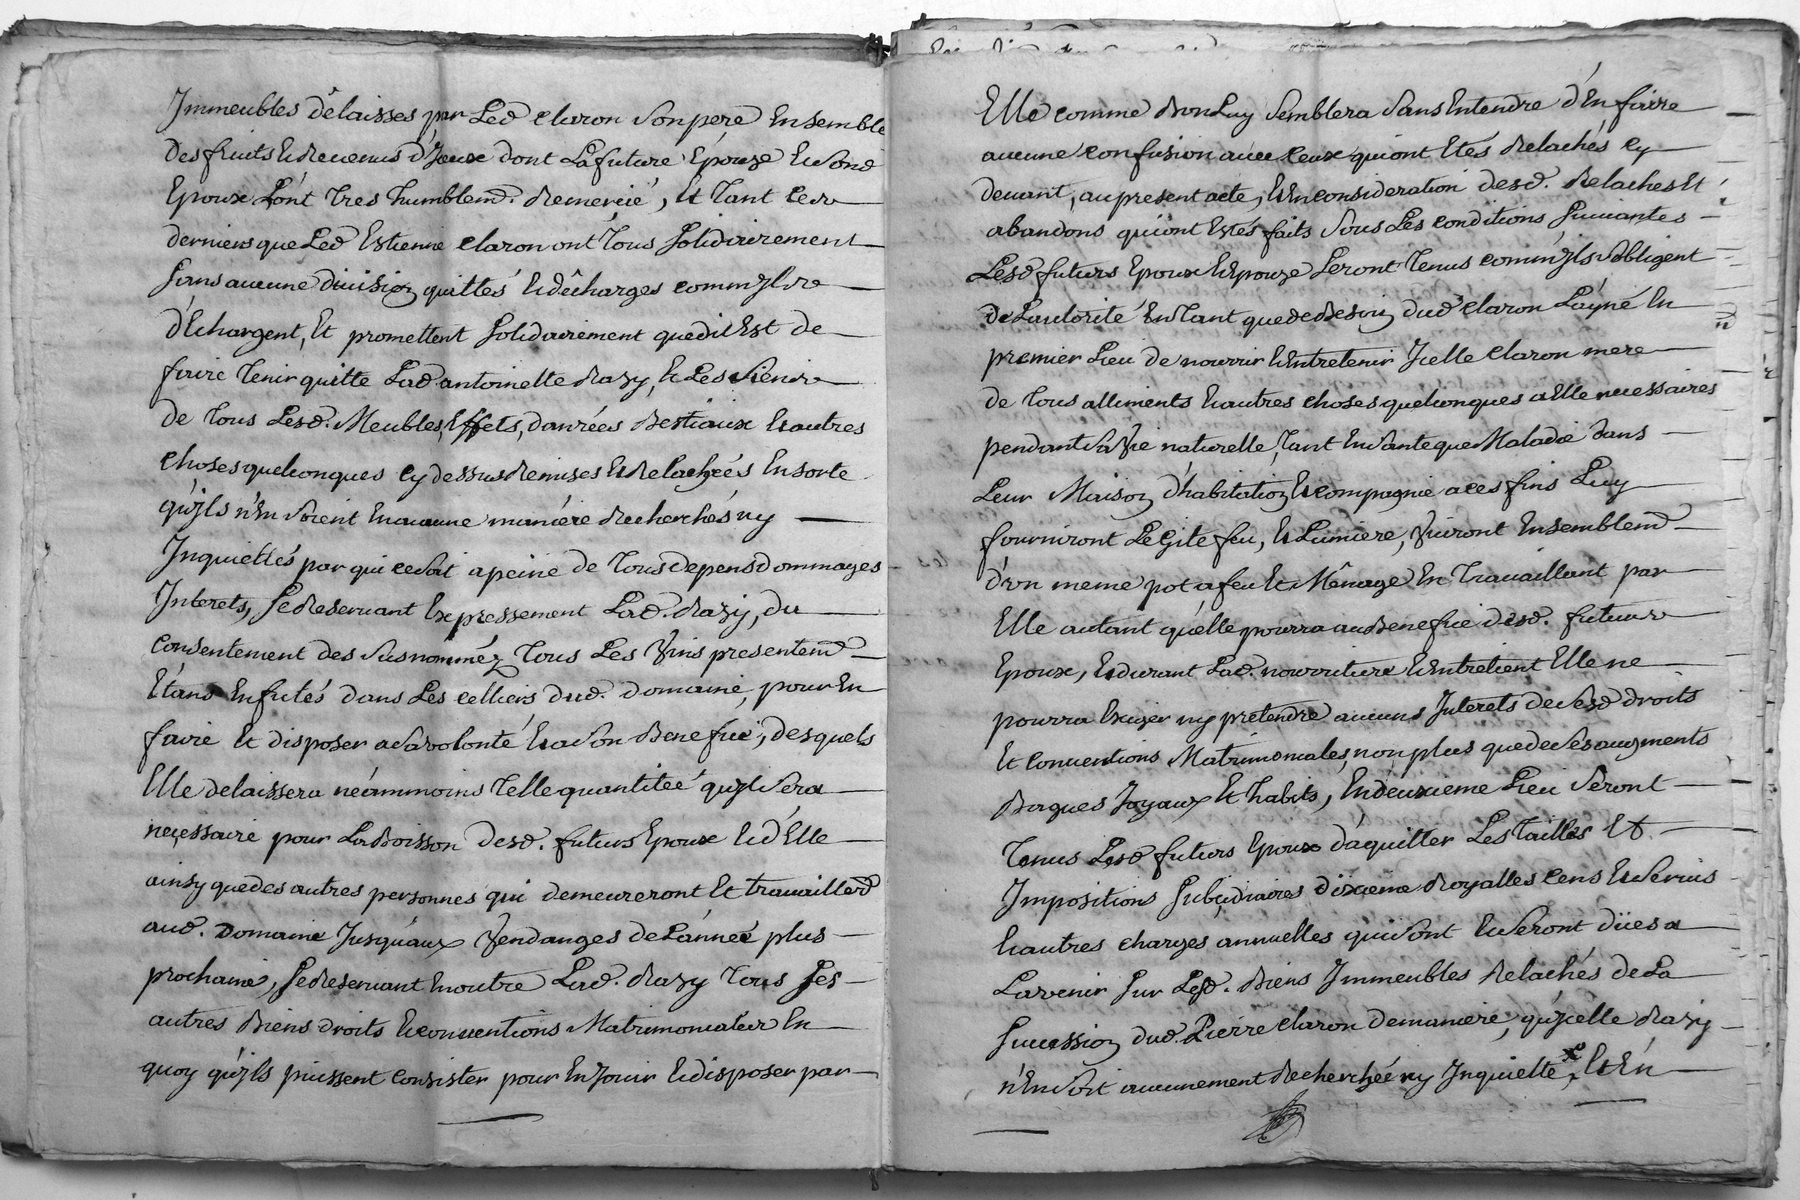 Immeubles délaisses par Led Claron son pere Ensemble
des fruits Et Revenus d'Jceux dont La future Epouze Et son
Epoux L'ont Tres humblemd. Remercié, Et Tant Ces
derniers que Led Estienne Claron ont Tous solidairement
sans aucune division quittés Et déchargés comm'Jls
déchargent, Et promettent solidairement que dit Est de
faire Tenir quitte Lad antoinette Razy, Et Les siens
de Tous Lesd. Meubles, Effets, danrées Bestiaux Et autres
choses quelconques cy dessus Remises Et Relachées En sorte
qu'Jls n'En soient En aucune maniére Recherchés ny
Inquiettés par qui ce soit a peine de Tous depens dommages
Interets, se Reservant Expressement Lad. Razy, du
consentement des susnomméz Tous Les Vins presentemd
Etans Enfutés dans Les celliers dud. domaine, pour En
faire Et disposer a sa volonté Et a son Benefice, desquels
Elle delaissera néammoins Telle quantiteé qu'Jl sera
neçessaire pour La Boisson desd. futurs Epoux Et d'Elle
ainsy que des autres personnes qui demeureront Et travaillerd
aud. Domaine Jusqu'aux Vendanges de L'année plus
prochaine, se Reservant En outre Lad. Razy Tous ses
autres Biens droits Et conventions Matrimoniales En
quoy qu'Jls puissent Consister pour En Jouir Et disposer par
Elle comme Bon Luy semblera sans Entendre d'En faire
aucune confusion avec Ceux qui ont Etés Relachés cy
devant, au present acte, Et En consideration desd. Relaches Et
abandons qui ont Estés faits sous Les conditions suivantes
Lesd futurs Epoux Et Epouze seront Tenus comm'Jls s'obligent
de L'autorité En Tant que de Besoin dud Claron L'ayné En
premier Lieu de nourrir Et Entretenir Jcelle Claron mere
de Tous alliments Et autres choses quelconques a Elle necessaires
pendant sa Vie naturelle, Tant En santé que Maladie dans
Leur Maison d'habitation Et compagnie a ces fins Luy
fourniront Le Gite feu, Et Lumiere, Vivront Ensemblemd
d'un meme pot a feu Et Ménage En Travaillant par
Elle autant qu'elle pourra au Benefice desd. futurs
Epoux, Et durant Lad. nourriture Et Entretient Elle ne
pourra Exiger ny pretendre aucuns Interets de sesd droits
Et Conventions Matrimoniales, non plus que de ses augments
Bagues Joyaux Et habits, En deuxieme Lieu seront
Tenus Lesd futurs Epoux d'aquitter Les Tailles Et
Impositions subçidiaires dixieme Royalles Cens Et servis
Et autres charges annuelles qui sont Et seront dües a
L'avenir sur Lesd. Biens Immeubles Relachés de La
succession dud. Pierre Claron de maniere, qu'Jcelle Razy
n'En soit aucunement Recherchée ny Inquietté, Et En